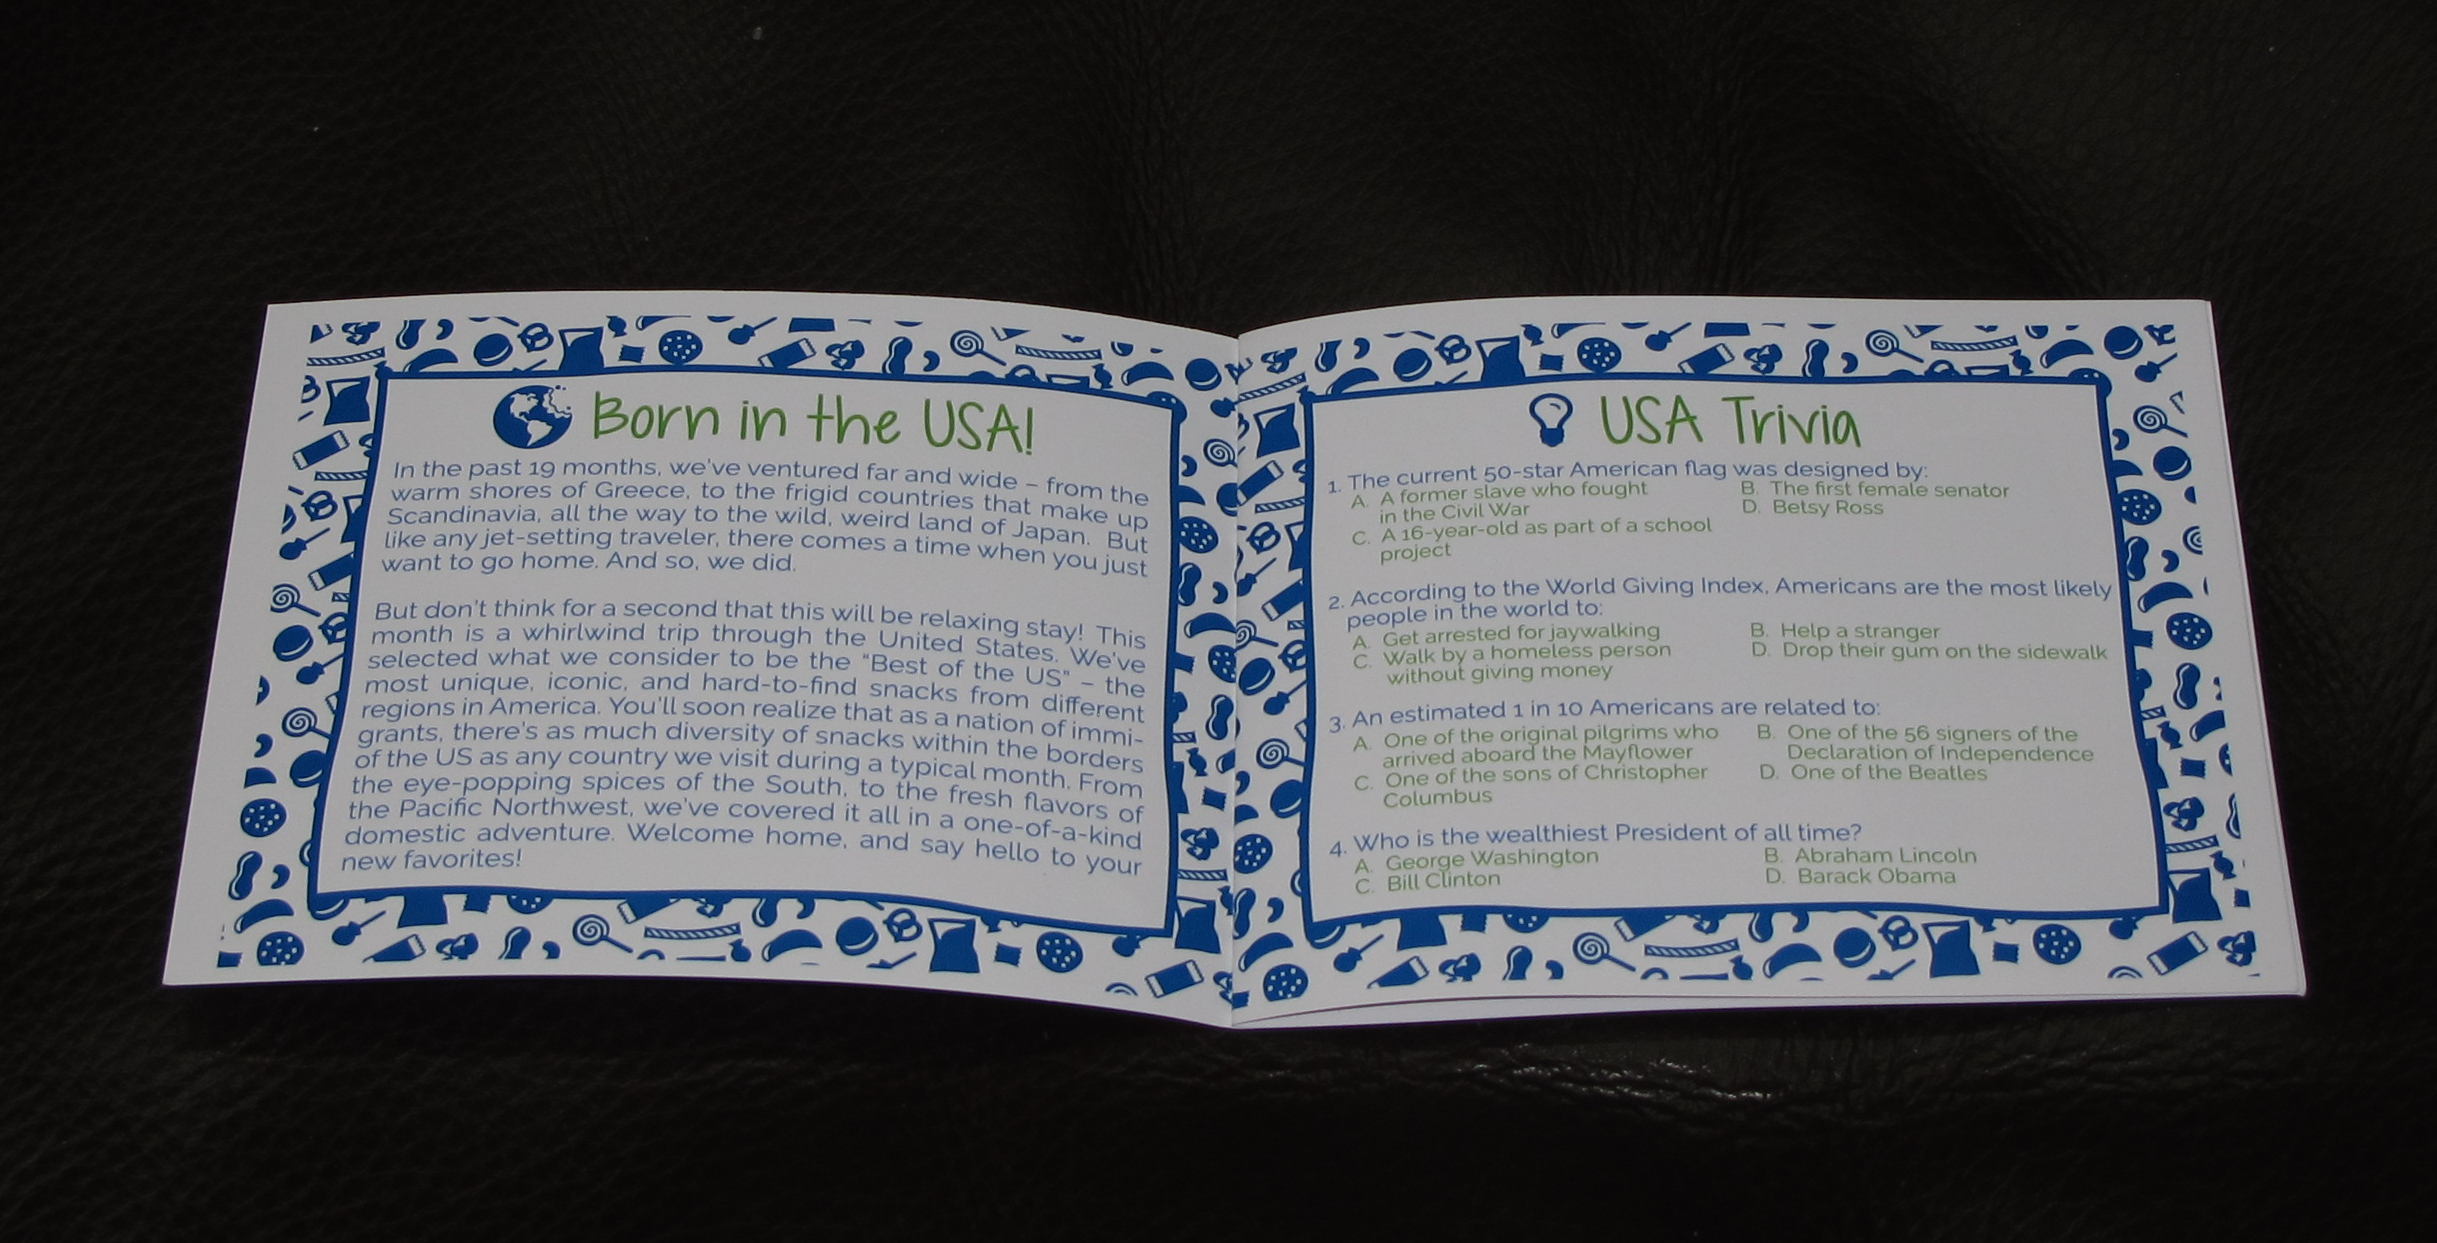 Born in the USA!
In the past 19 months, we've ventured far and wide – from the
warm shores of Greece, to the frigid countries that make up
Scandinavia, all the way to the wild, weird land of Japan. But
like any jet-setting traveler, there comes a time when you just
want to go home. And so, we did.
But don't think for a second that this will be relaxing stay! This
month is a whirlwind trip through the United States. We've
selected what we consider to be the "Best of the US" – the
most unique, iconic, and hard-to-find snacks from different
regions in America. You'll soon realize that as a nation of immi-
grants, there's as much diversity of snacks within the borders
of the US as any country we visit during a typical month. From
the eye-popping spices of the South, to the fresh flavors of
the Pacific Northwest, we've covered it all in a one-of-a-kind
domestic adventure. Welcome home, and say hello to your
new favorites!
USA Trivia
1. The current 50-star American flag was designed by:
A. A former slave who fought
in the Civil War
B. The first female senator
C. A 16-year-old as part of a school
project
D. Betsy Ross
2. According to the World Giving Index, Americans are the most likely
people in the world to:
A. Get arrested for jaywalking
B. Help a stranger
C. Walk by a homeless person
without giving money
D. Drop their gum on the sidewalk
3. An estimated 1 in 10 Americans are related to:
A. One of the original pilgrims who
arrived aboard the Mayflower
B. One of the 56 signers of the
Declaration of Independence
C. One of the sons of Christopher
Columbus
D. One of the Beatles
4. Who is the wealthiest President of all time?
A. George Washington
B. Abraham Lincoln
C. Bill Clinton
D. Barack Obama